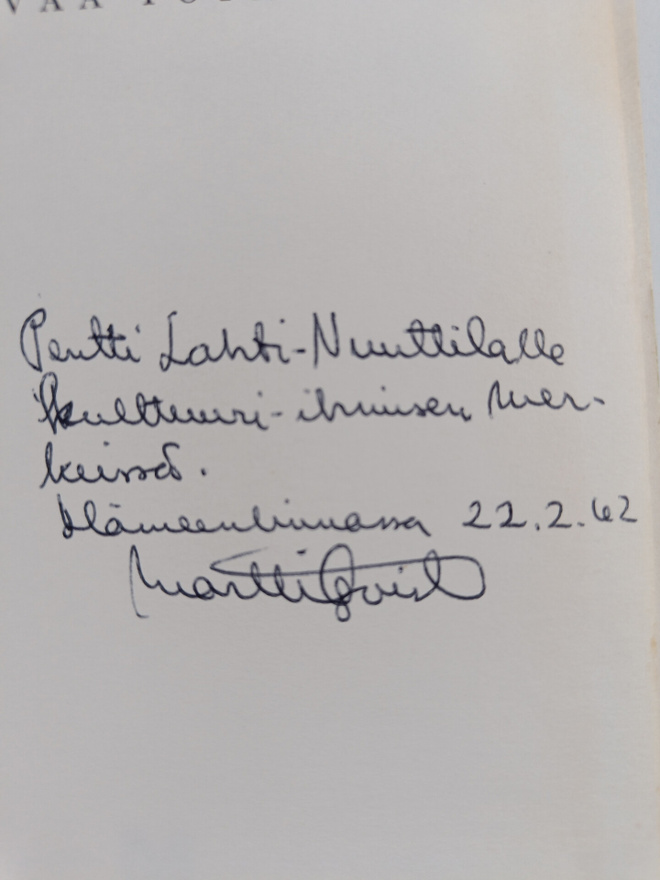 Pentti Lahti-Nuuttilalle
kulttuuri-ihmisen mer-
keissä.
Hämeenlinnassa 22.2.62
Martti Qvist